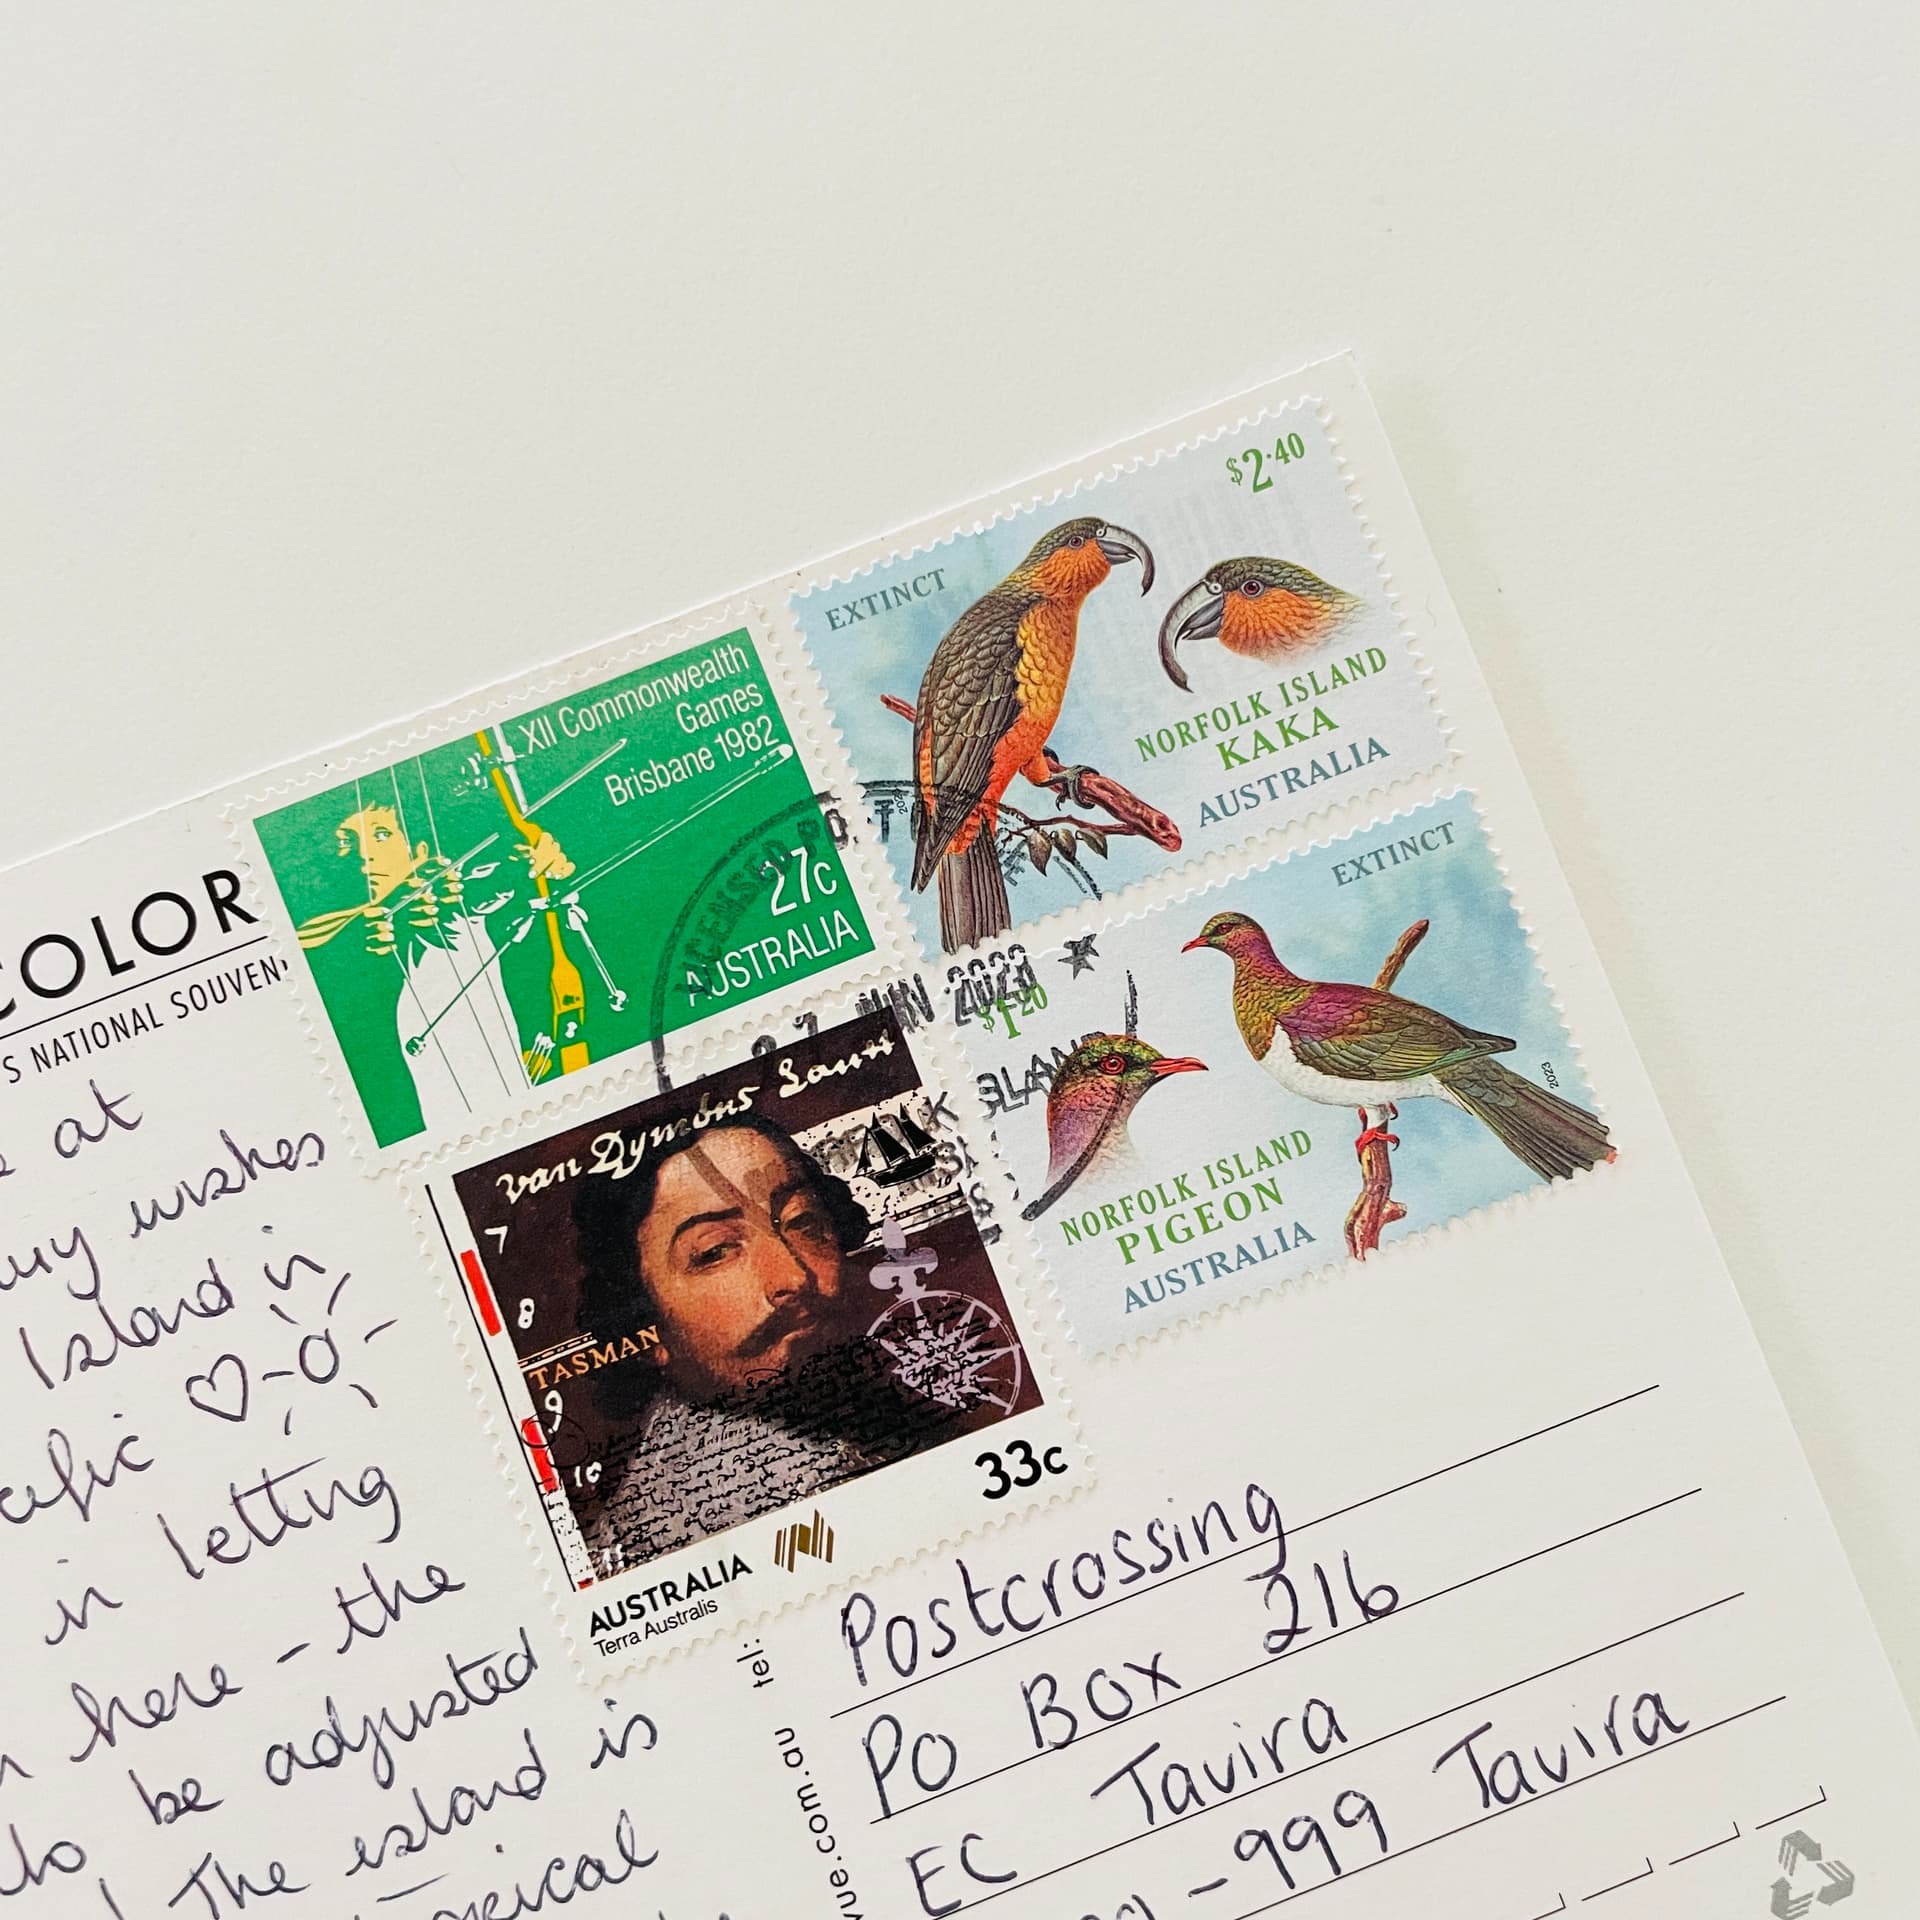 COLOR
S NATIONAL SOUVEN
XII Commonwealth
Games
Brisbane 1982
27c
AUSTRALIA
EXTINCT
$2.40
NORFOLK ISLAND
KAKA
AUSTRALIA
EXTINCT
$1.20
NORFOLK ISLAND
PIGEON
AUSTRALIA
2023
LICENSED PO
JUN 2023
ISLAND
Van Dymens Land
7
8
TASMAN
9
10
33c
AUSTRALIA
Terra Australis
at
wishes
Island is
in letting
here - the
be adjusted
The island is
tel:
vue.com.au
Postcrossing
PO Box 216
EC Tavira
-999 Tavira